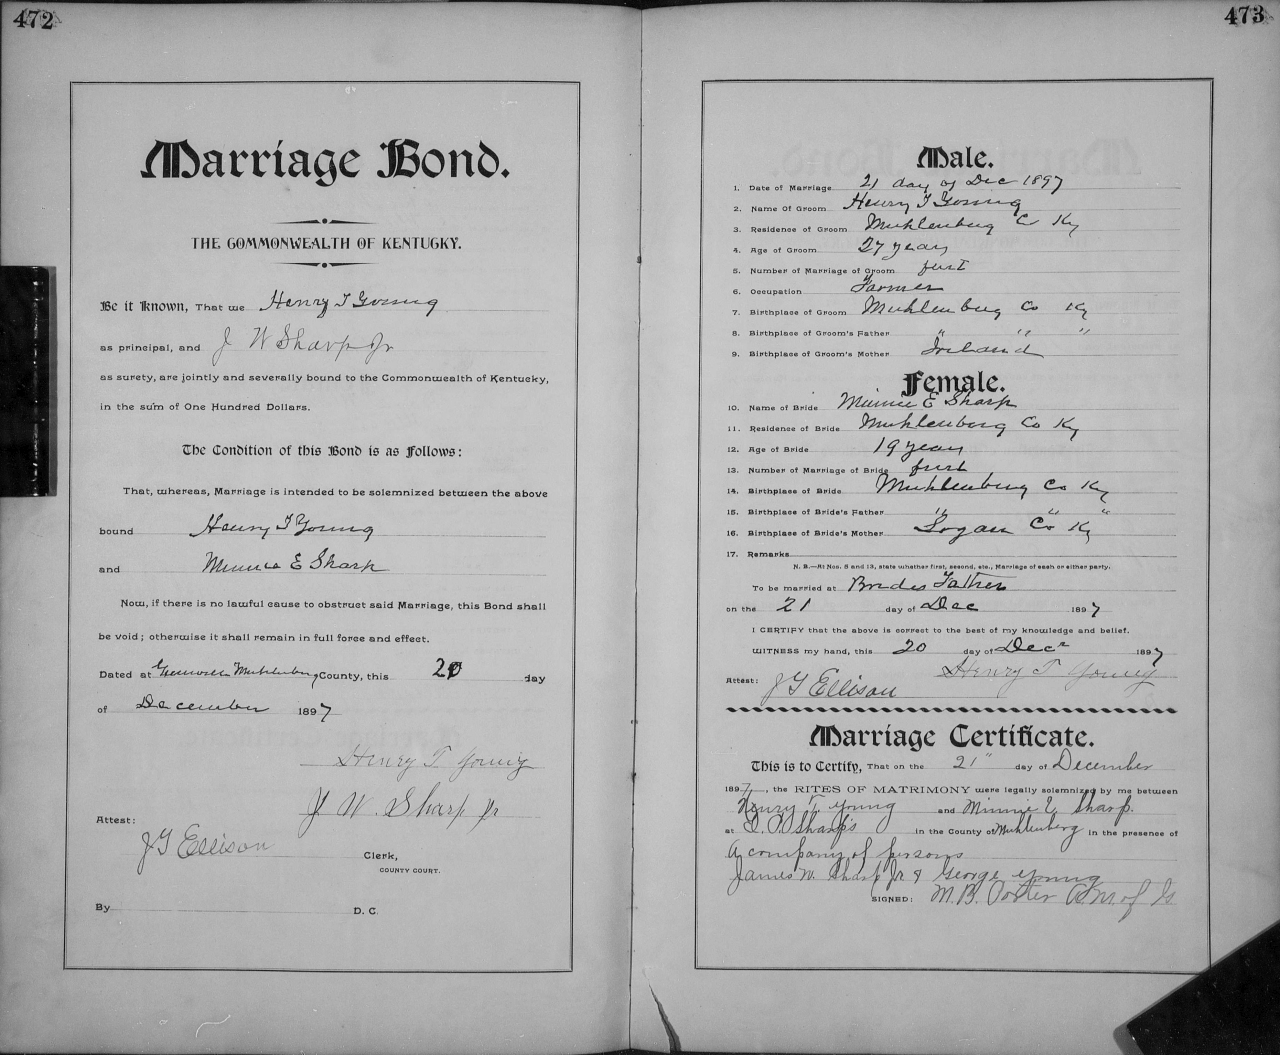 472
Marriage Bond.
THE COMMONWEALTH OF KENTUCKY.
Be it Known, That we Henry T Young
as principal, and J W Sharp Jr
as surety, are jointly and severally bound to the Commonwealth of Kentucky,
in the sum of One Hundred Dollars.
The Condition of this Bond is as Follows:
That, whereas, Marriage is intended to be solemnized between the above
bound Henry T Young
and Minnie E Sharp
Now, if there is no lawful cause to obstruct said Marriage, this Bond shall
be void; otherwise it shall remain in full force and effect.
Dated at Greenville Muhlenberg County, this 20 day
of December 1897
Henry T Young
J W. Sharp Jr
Attest:
J G Ellison
Clerk,
COUNTY COURT.
By D. C.
473
Male.
1. Date of Marriage 21 day of Dec 1897
2. Name Of Groom Henry T Young
3. Residence of Groom Muhlenberg C Ky
4. Age of Groom 27 years
5. Number of Marriage of Groom first
6. Occupation Farmer
7. Birthplace of Groom Muhlenberg Co Ky
8. Birthplace of Groom's Father " " "
9. Birthplace of Groom's Mother Ireland
Female.
10. Name of Bride Minnie E Sharp
11. Residence of Bride Muhlenberg Co Ky
12. Age of Bride 19 years
13. Number of Marriage of Bride first
14. Birthplace of Bride Muhlenberg Co Ky
15. Birthplace of Bride's Father " " "
16. Birthplace of Bride's Mother Logan Co Ky
17. Remarks
N. B.—At Nos. 5 and 13, state whether first, second, etc., Marriage of each or either party.
To be married at Brides Father
on the 21 day of Dec 1897
I CERTIFY that the above is correct to the best of my knowledge and belief.
WITNESS my hand, this 20 day of Decr 1897
Henry T Young
Attest: J G Ellison
Marriage Certificate.
This is to Certify, That on the 21" day of December
1897, the RITES OF MATRIMONY were legally solemnized by me between
Henry T. Young and Minnie E Sharp.
at Sharp's in the County of Muhlenberg in the presence of
A company of persons
James W. Sharp Jr & George Young
SIGNED: M. B. Porter